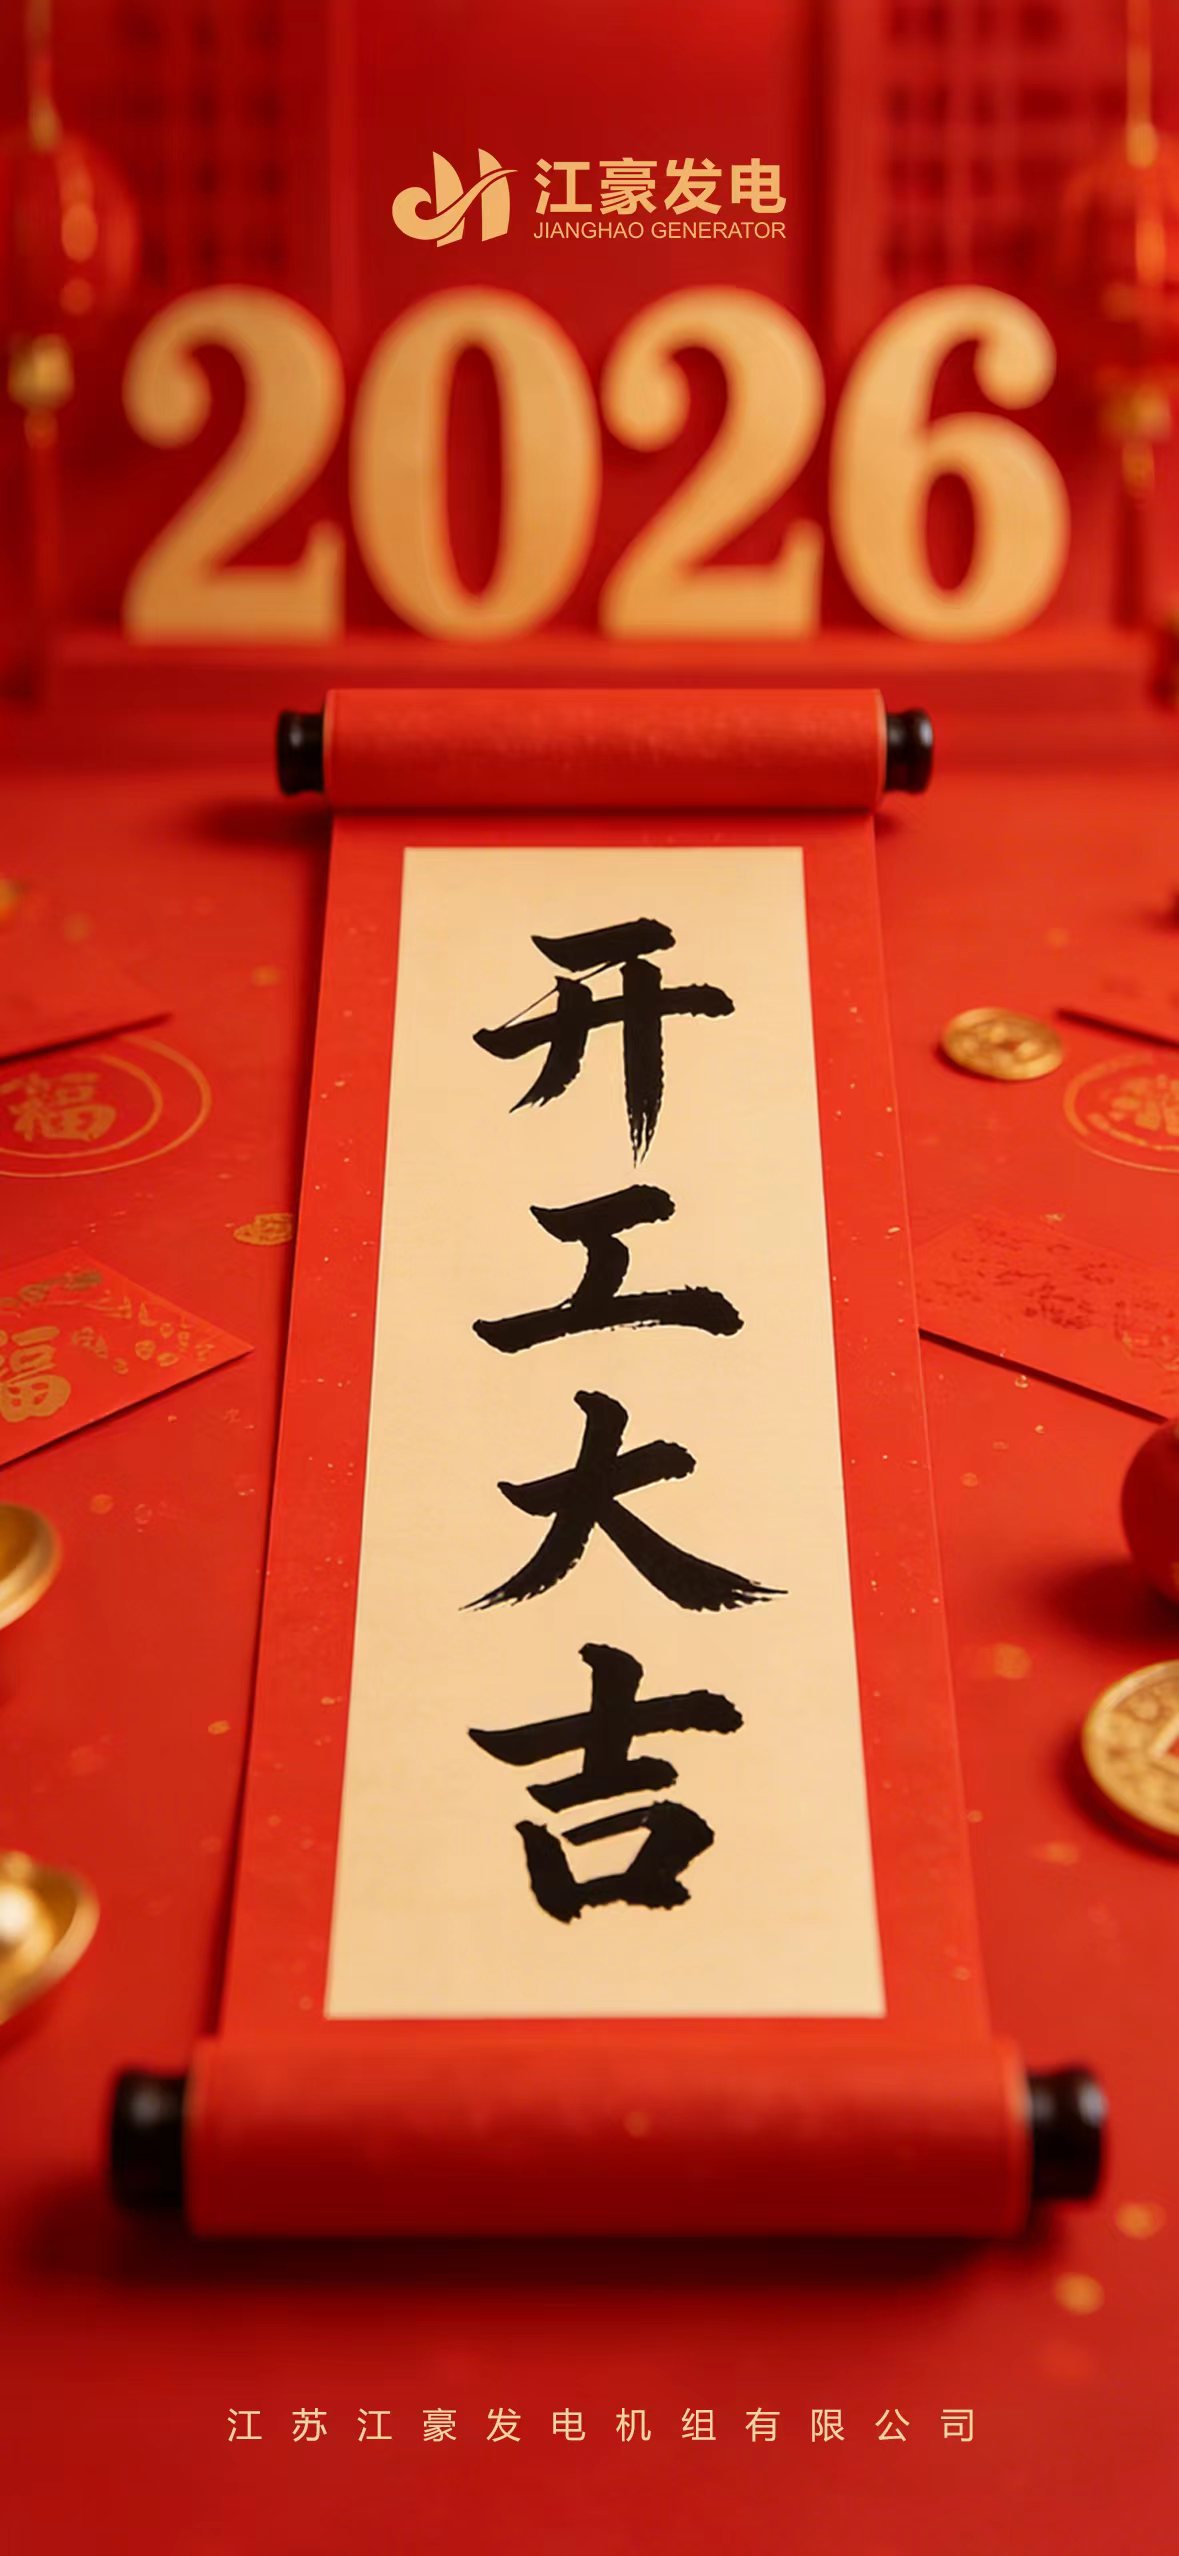 江豪发电
JIANGHAO GENERATOR
2026
开工大吉
福
福
江苏江豪发电机组有限公司